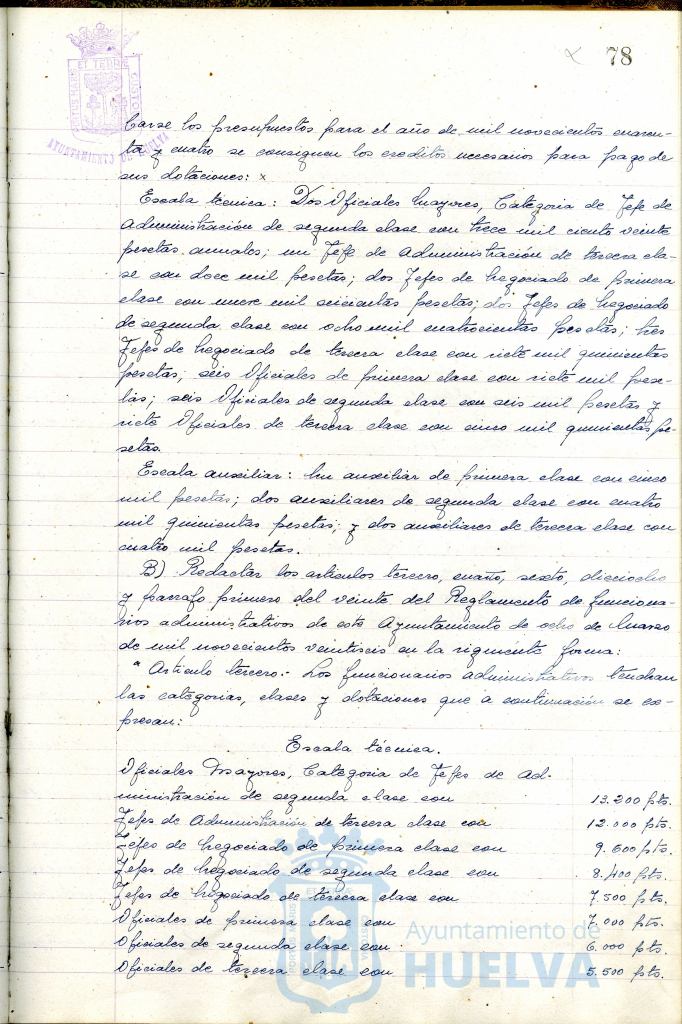 78
AYUNTAMIENTO DE HUELVA
carse los presupuestos para el año de mil novecientos cuaren-
ta y cuatro se consignen los creditos necesarios para pago de
sus dotaciones: x
Escala técnica: Dos Oficiales Mayores, Categoria de Jefe de
Administración de segunda clase con trece mil ciento veinte
pesetas anuales; un Jefe de Administración de tercera cla-
se con doce mil pesetas; dos Jefes de Negociado de primera
clase con nueve mil seiscientas pesetas; dos Jefes de Negociado
de segunda clase con ocho mil cuatrocientas pesetas; tres
Jefes de Negociado de tercera clase con siete mil quinientas
pesetas; seis Oficiales de primera clase con siete mil pese-
tas; seis Oficiales de segunda clase con seis mil pesetas y
siete Oficiales de tercera clase con cinco mil quinientas pe-
setas.
Escala auxiliar: Un auxiliar de primera clase con cinco
mil pesetas; dos auxiliares de segunda clase con cuatro
mil quinientas pesetas; y dos auxiliares de tercera clase con
cuatro mil pesetas.
B) Redactar los articulos tercero, cuarto, sexto, dieciocho
y parrafo primero del veinte del Reglamento de funciona-
rios administrativos de este Ayuntamiento de ocho de Marzo
de mil novecientos veintiseis en la siguiente forma:
" Articulo tercero.- Los funcionarios administrativos tendran
las categorias, clases y dotaciones que a continuación se ex-
presan:
Escala técnica.
Oficiales Mayores, Categoria de Jefes de Ad-
ministración de segunda clase con 13.200 pts.
Jefes de Administración de tercera clase con 12.000 pts.
Jefes de Negociado de primera clase con 9.600 pts.
Jefes de Negociado de segunda clase con 8.400 pts.
Jefes de Negociado de tercera clase con 7.500 pts.
Oficiales de primera clase con 7.000 pts.
Oficiales de segunda clase con 6.000 pts.
Oficiales de tercera clase con 5.500 pts.
Ayuntamiento de
HUELVA